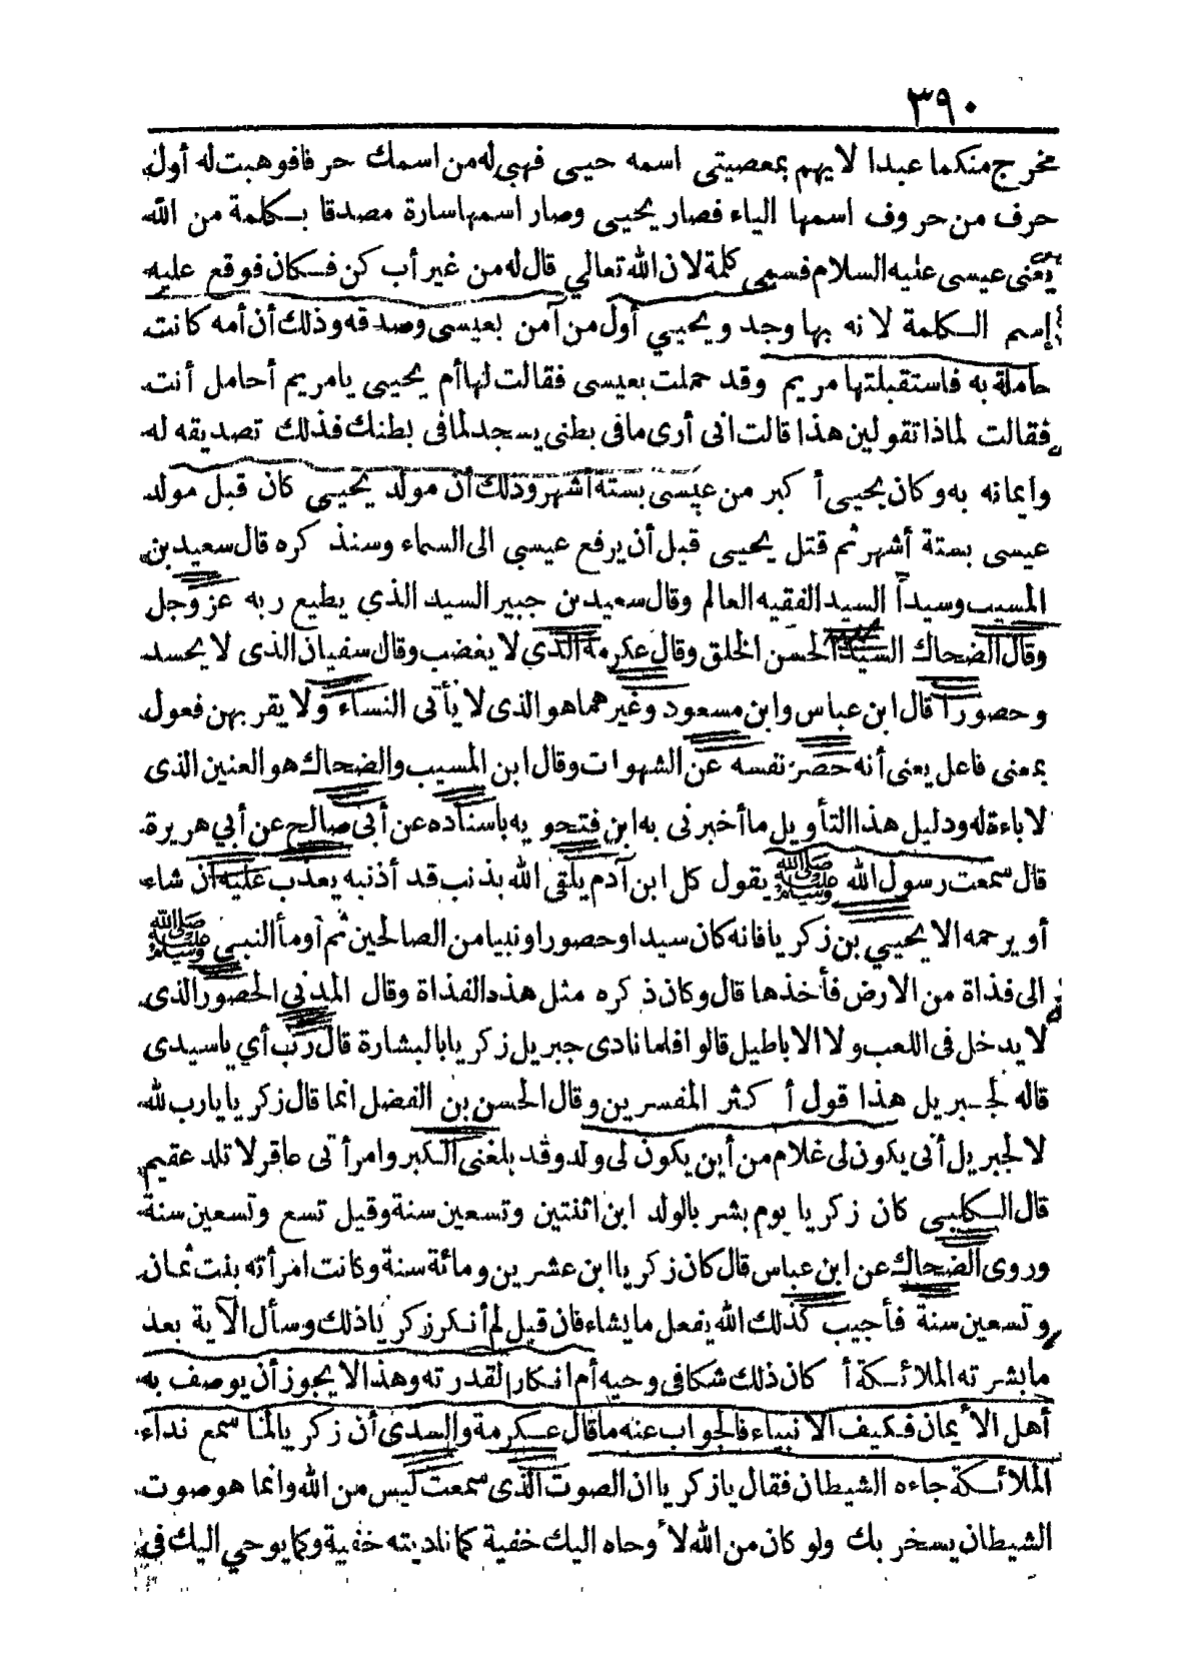 ٣٩٠
مخرج منكما عبدا لا يهم بمعصيتى اسمه حيى فهبى له من اسمك حرفا فوهبت له أول
حرف من حروف اسمها الياء فصار يحيى وصار اسمها سارة مصدقا بكلمة من الله
يعنى عيسى عليه السلام فسمى كلمة لان الله تعالي قال له من غير أب كن فكان فوقع عليه
إسم الكلمة لانه بها وجد ويحيي أول من آمن بعيسى وصدقه وذلك أن أمه كانت
حاملة به فاستقبلتها مريم وقد حملت بعيسى فقالت لها أم يحيى يا مريم أحامل أنت
فقالت لماذا تقولين هذا قالت انى أرى مافى بطنى يسجد لما فى بطنك فذلك تصديقه له
وايمانه به وكان يحيى أكبر من عيسى بستة أشهر وذلك أن مولد يحيى كان قبل مولد
عيسى بستة أشهر ثم قتل يحيى قبل أن يرفع عيسي الى السماء وسنذكره قال سعيد بن
المسيب وسيداً السيد الفقيه العالم وقال سعيد بن جبير السيد الذي يطيع ربه عز وجل
وقال الضحاك السيد الحسن الخلق وقال عكرمة الذي لا يغضب وقال سفيان الذى لا يحسد
وحصورا قال ابن عباس وابن مسعود وغيرهما هو الذى لا يأتى النساء ولا يقربهن فعول
بمعنى فاعل يعنى أنه حصر نفسه عن الشهوات وقال ابن المسيب والضحاك هو العنين الذى
لا باءة له ودليل هذا التأويل ما أخبرنى به ابن فتحويه باسناده عن أبى صالح عن أبي هريرة
قال سمعت رسول الله ﷺ يقول كل ابن آدم يلقى الله بذنب قد أذنبه يعذب عليه ان شاء
أو يرحمه الا يحيي بن زكريا فانه كان سيدا وحصورا ونبيا من الصالحين ثم أومأ النبي ﷺ
الى قذاة من الارض فأخذها قال وكان ذكره مثل هذه القذاة وقال المدني الحصور الذى
لا يدخل فى اللعب ولا الاباطيل قالوا فلما نادى جبريل زكريا بالبشارة قال رب أي ياسيدى
قاله لجبريل هذا قول أكثر المفسرين وقال الحسن بن الفضل انما قال زكريا يارب لله
لا لجبريل أنى يكون لى غلام من أين يكون لى ولد وقد بلغنى الكبر وامرأتى عاقر لا تلد عقيم
قال الكلبى كان زكريا يوم بشر بالولد ابن اثنتين وتسعين سنة وقيل تسع وتسعين سنة
وروى الضحاك عن ابن عباس قال كان زكريا ابن عشرين ومائة سنة وكانت امرأته بنت ثمان
وتسعين سنة فأجيب كذلك الله يفعل ما يشاء فان قيل لم أنكر زكريا ذلك وسأل الآية بعد
ما بشرته الملائكة أكان ذلك شكا فى وحيه أم انكارا لقدرته وهذا لا يجوز أن يوصف به
أهل الأيمان فكيف الانبياء فالجواب عنه ما قال عكرمة والسدى أن زكريا لما سمع نداء
الملائكة جاءه الشيطان فقال يا زكريا ان الصوت الذى سمعت ليس من الله وانما هو صوت
الشيطان يسخر بك ولو كان من الله لأوحاه اليك خفية كما ناديته خفية وكما يوحي اليك فى